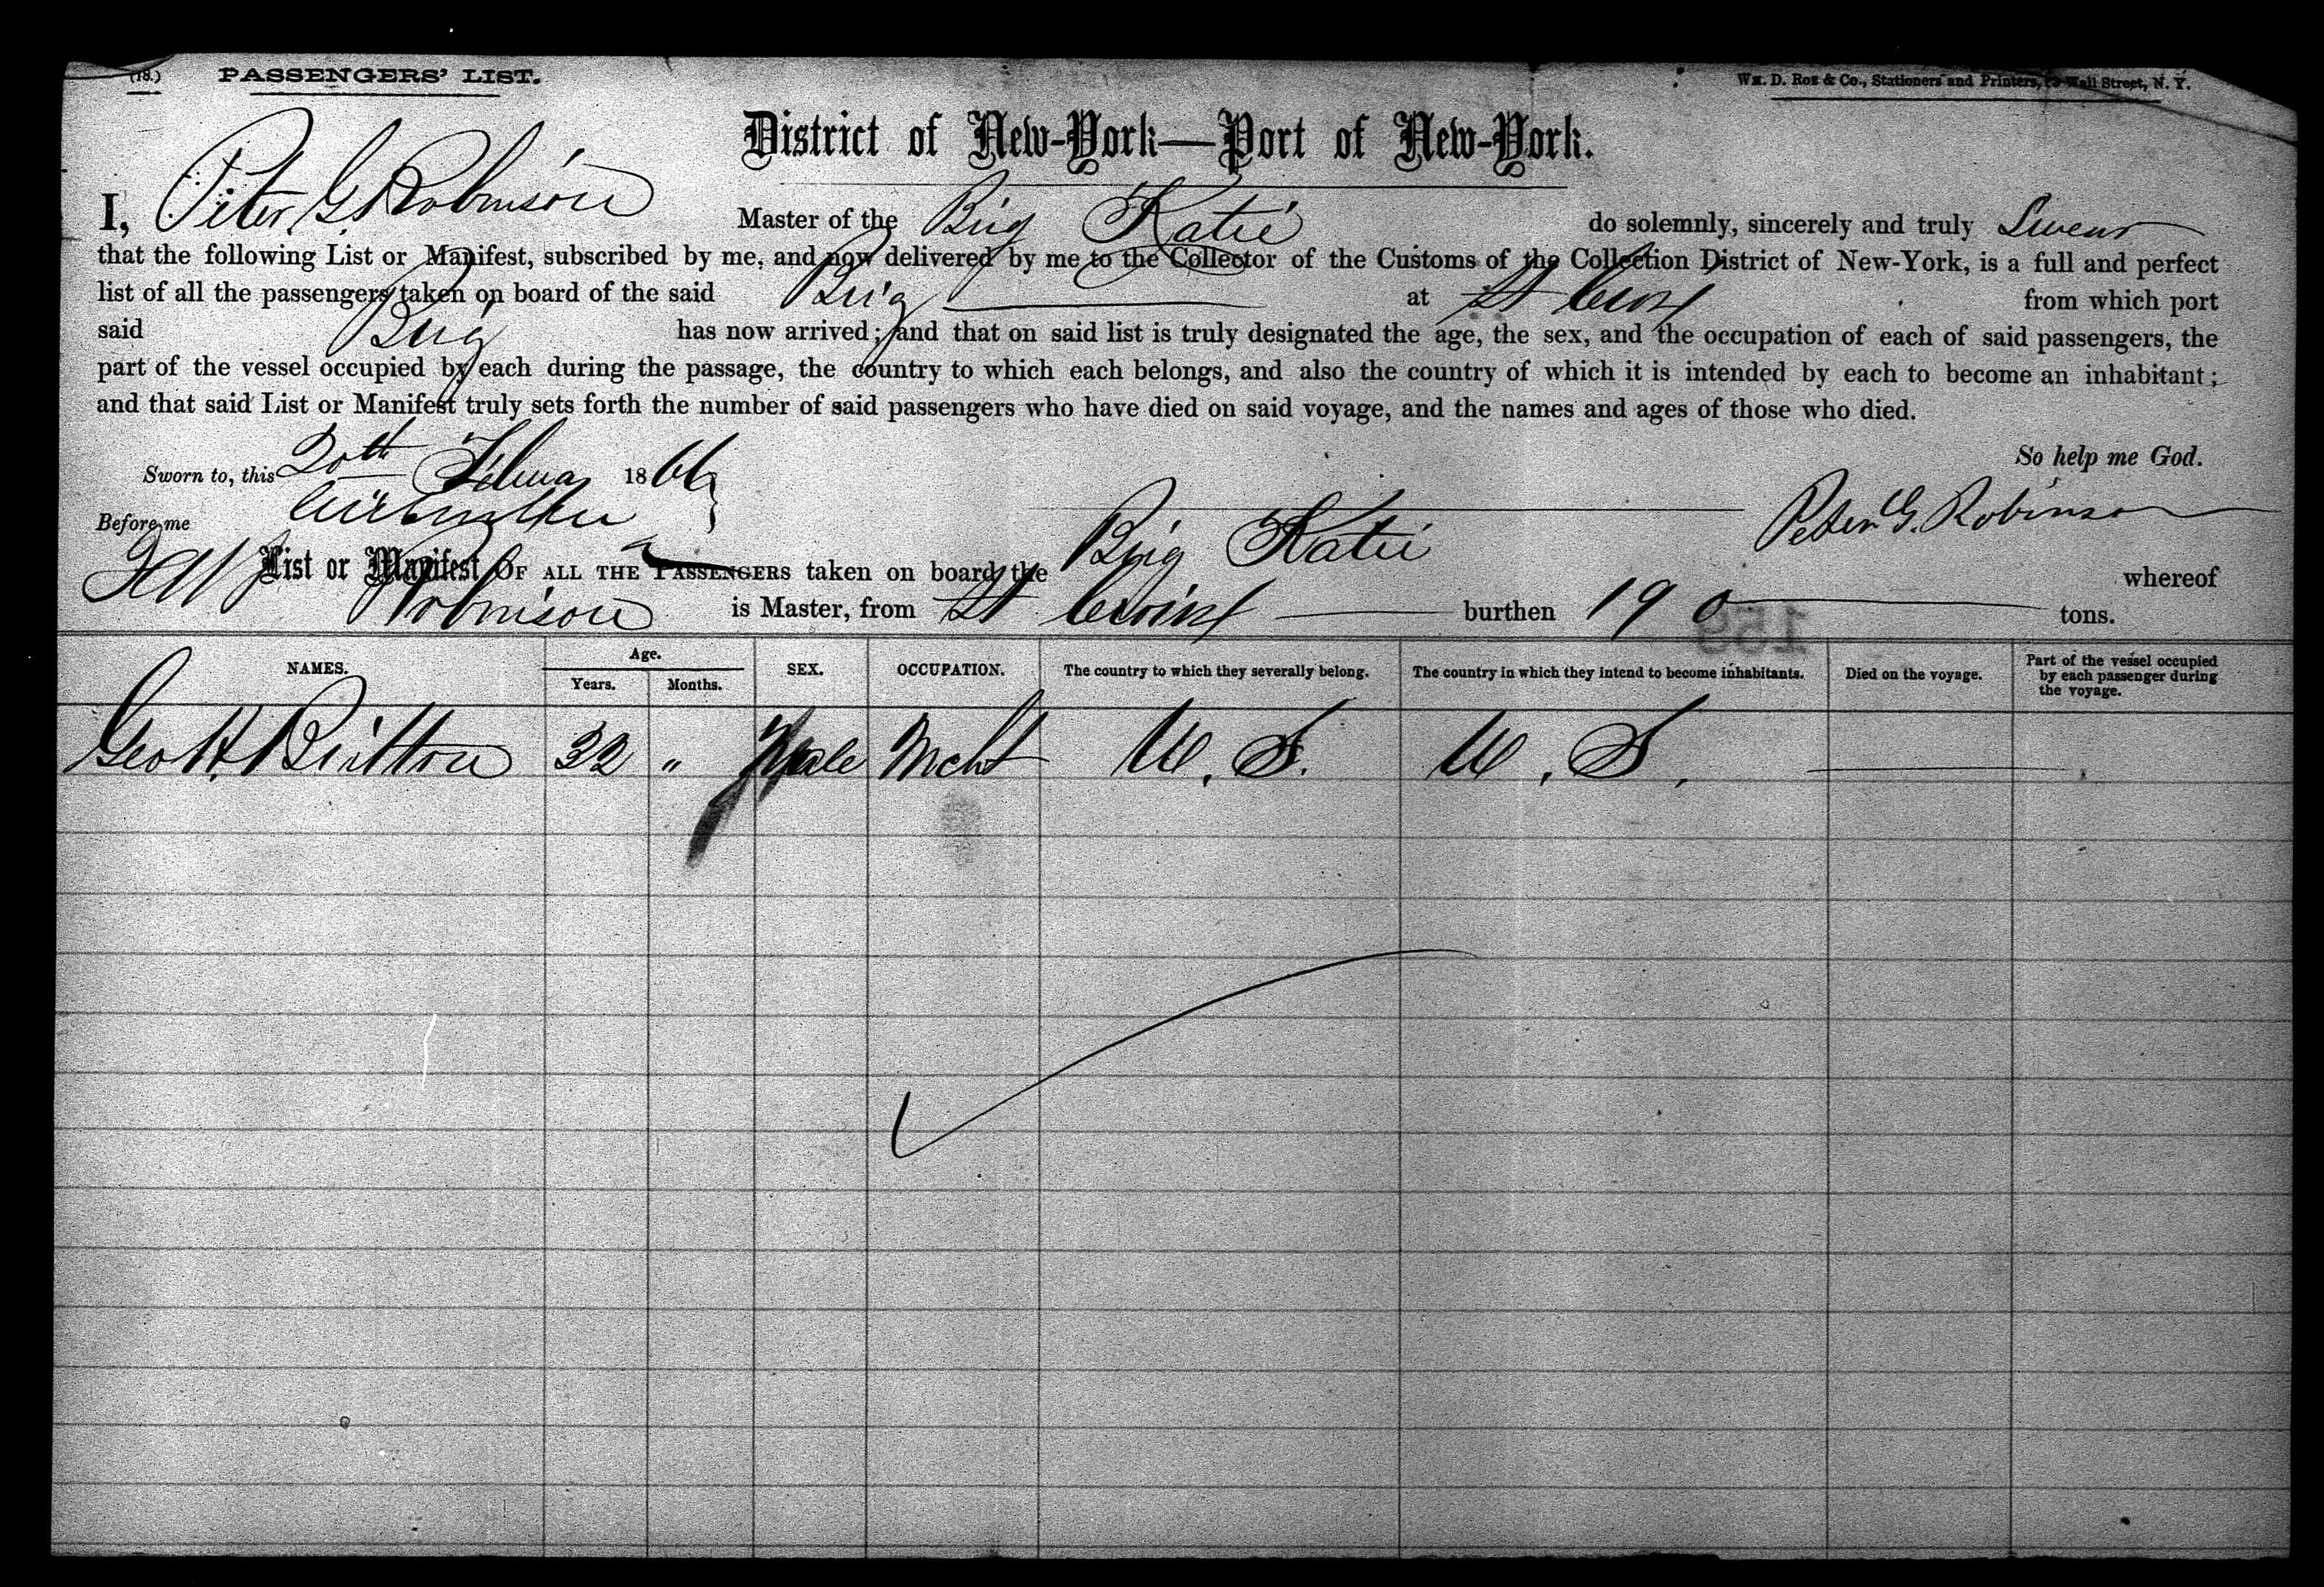 (18.) PASSENGERS' LIST. Wm. D. Roe & Co., Stationers and Printers, Wall Street, N. Y.
District of New-York—Port of New-York.
I, Peter G. Robinson Master of the Brig Katie do solemnly, sincerely and truly Swear
that the following List or Manifest, subscribed by me, and now delivered by me to the Collector of the Customs of the Collection District of New-York, is a full and perfect
list of all the passengers taken on board of the said Brig at St Croix from which port
said Brig has now arrived; and that on said list is truly designated the age, the sex, and the occupation of each of said passengers, the
part of the vessel occupied by each during the passage, the country to which each belongs, and also the country of which it is intended by each to become an inhabitant;
and that said List or Manifest truly sets forth the number of said passengers who have died on said voyage, and the names and ages of those who died.
So help me God.
Sworn to, this 20th 1866
Before me
Peter G. Robinson
List or Manifest OF ALL THE PASSENGERS taken on board the Brig Katie whereof
Robinson is Master, from St Croix burthen 190 tons.
159
NAMES. Age. Years. Months. SEX. OCCUPATION. The country to which they severally belong. The country in which they intend to become inhabitants. Died on the voyage. Part of the vessel occupied by each passenger during the voyage.
Geo H. Britton 32 " Male Mcht U. S. U. S.